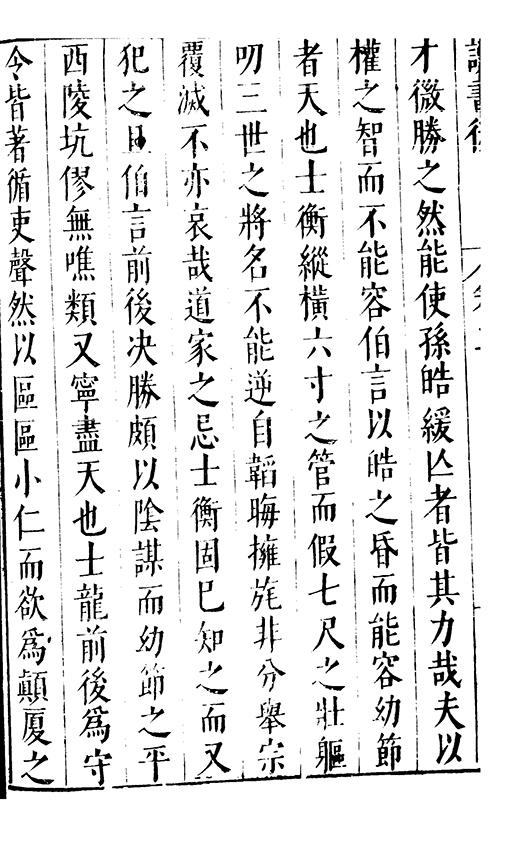 讀書後
卷二
才微勝之然能使孫皓緩亾者皆其力哉夫以
權之智而不能容伯言以皓之昏而能容幼節
者天也士衡縱橫六寸之管而假七尺之壯軀
叨三世之將名不能逆自韜晦擁旄非分舉宗
覆滅不亦哀哉道家之忌士衡固巳知之而又
犯之且伯言前後决勝頗以陰謀而幼節之平
西陵坑僇無噍類又寧盡天也士龍前後為守
令皆著循吏聲然以區區小仁而欲為顛厦之